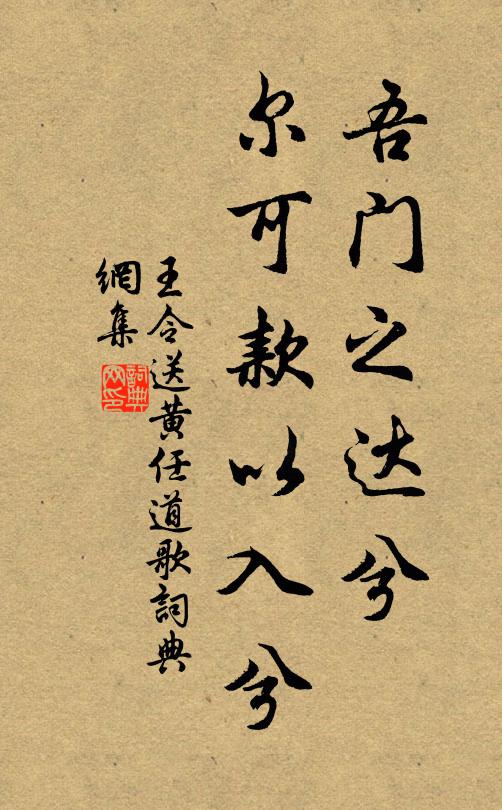 吾门之达兮
尔可款以入兮
王令送黄任道歌詞典
網集
詞典网印